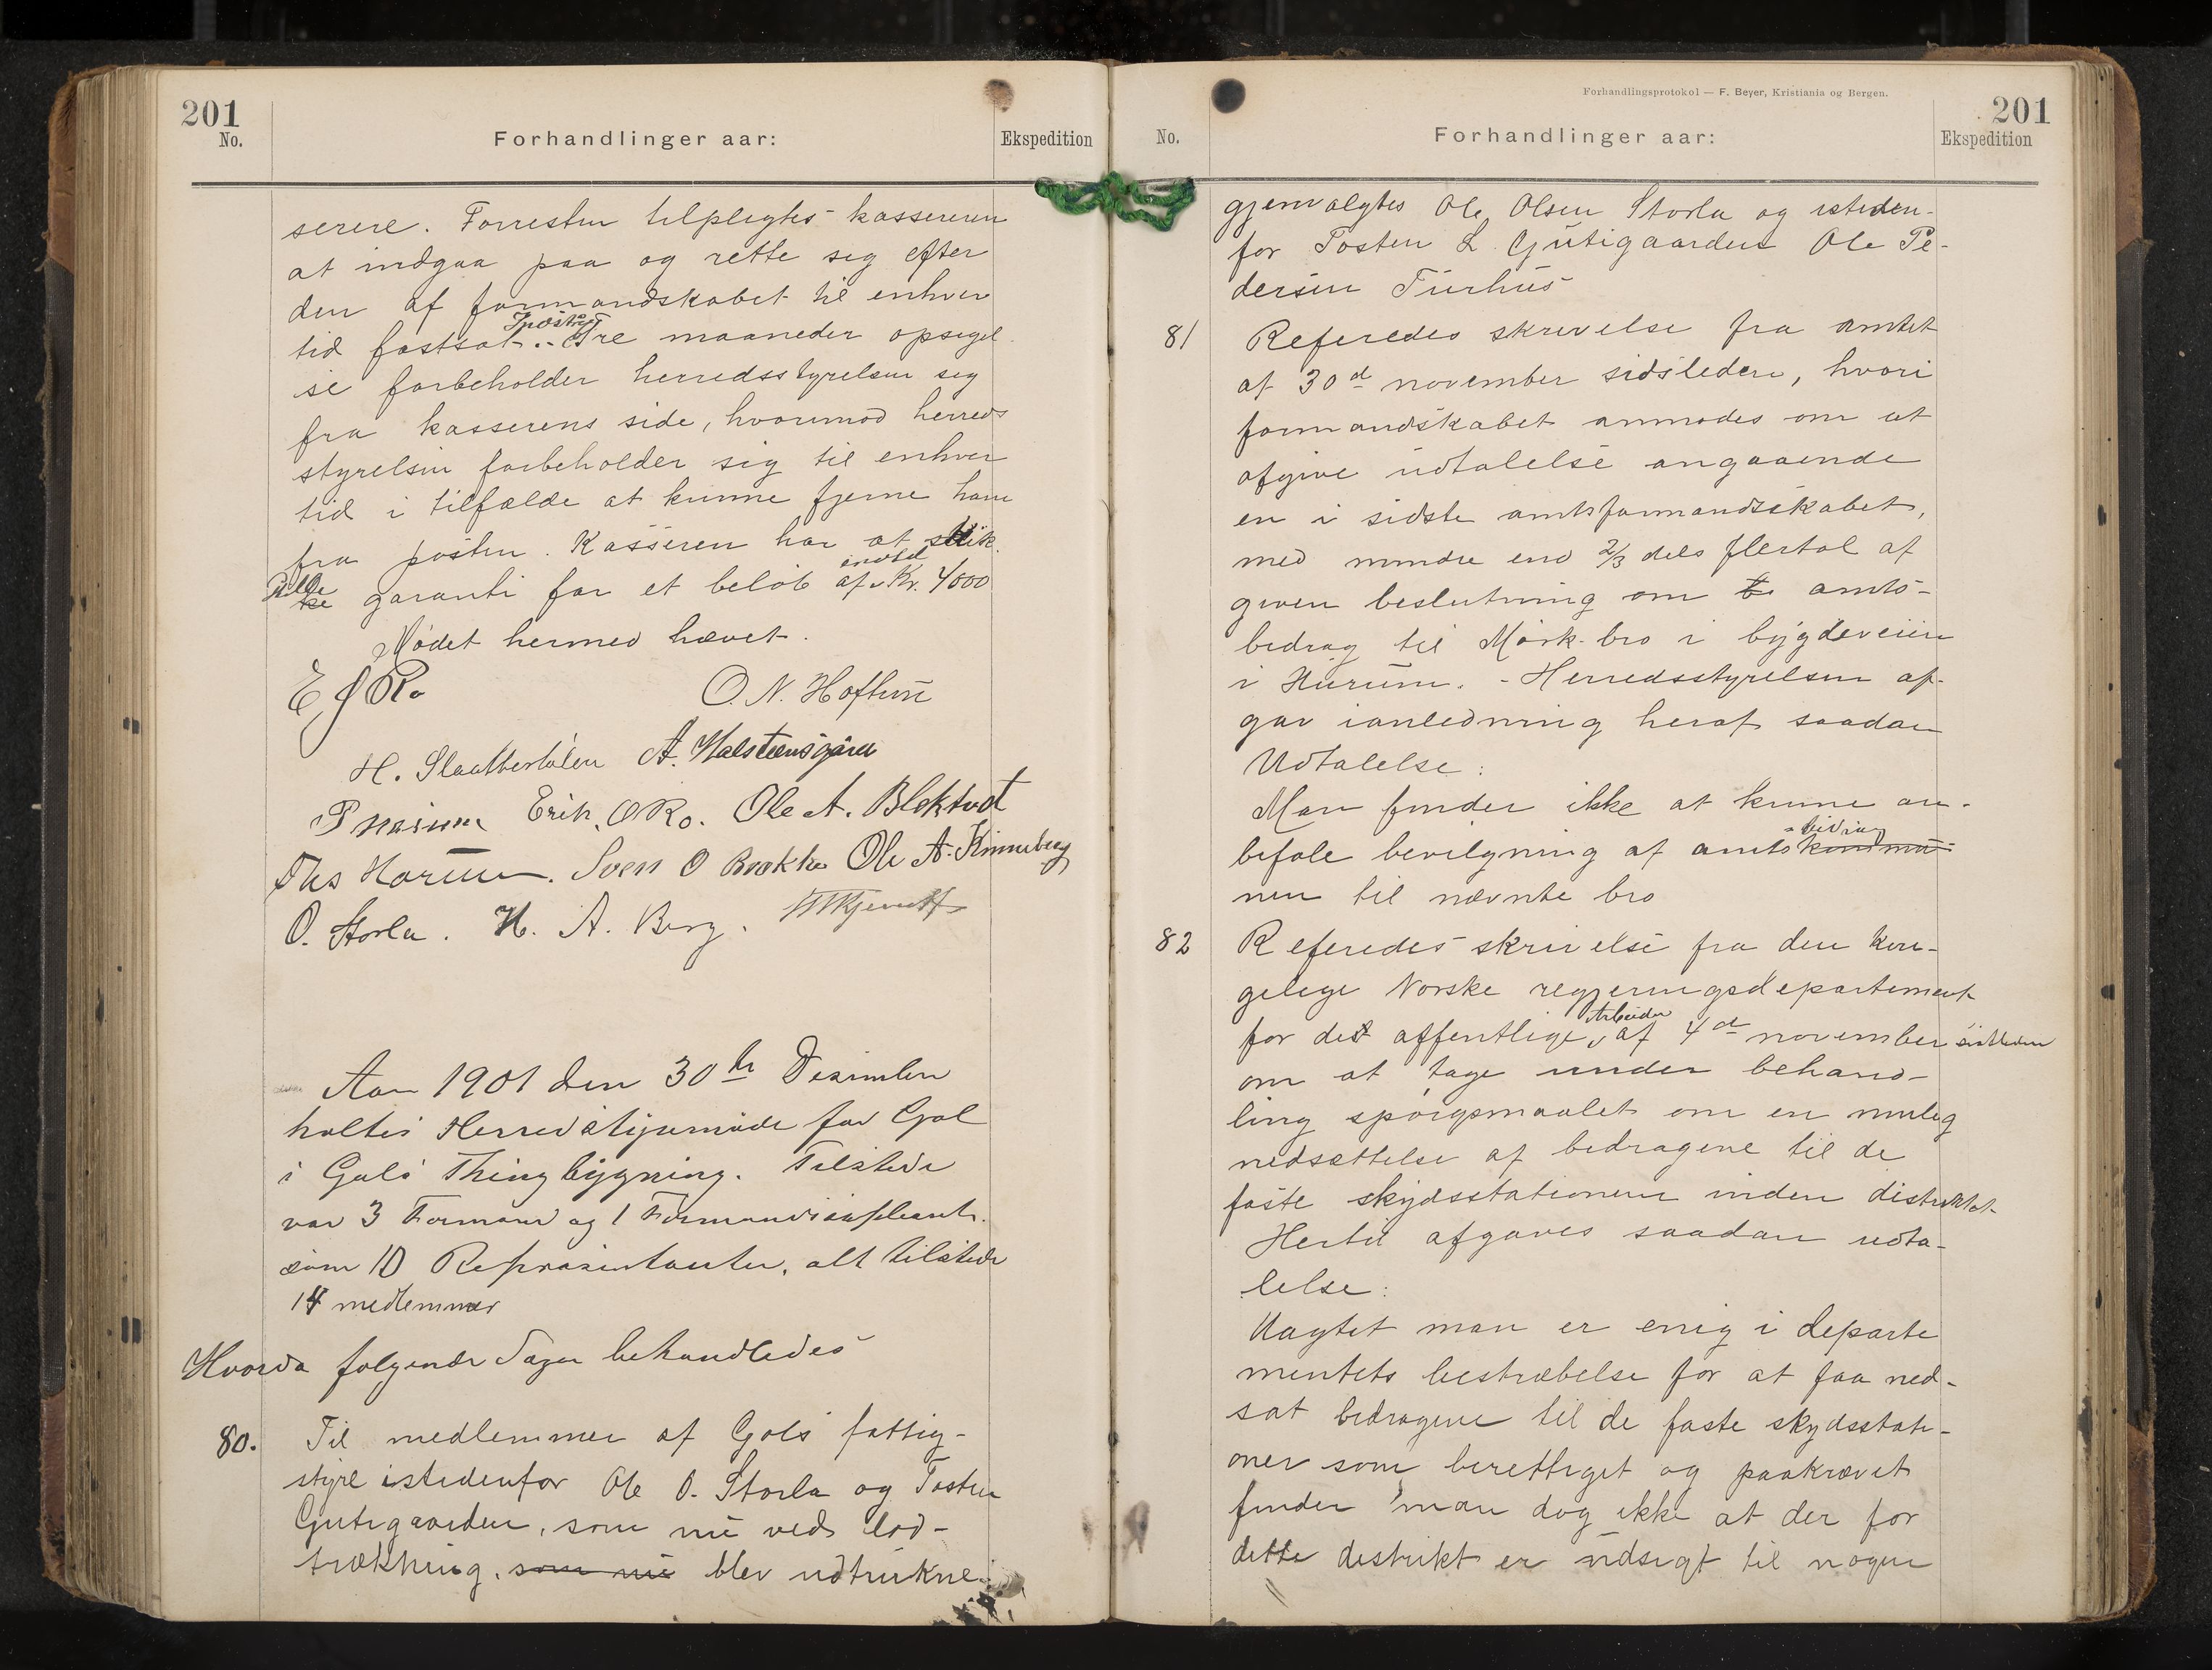 201
No.
Forhandlinger aar:
Ekspedition
serere. Forresten tilpligtes kassereren
at indgaa paa og rette sig efter
den af formandskabet til enhver
tid fastsat Tre maaneder opsigel
se forbeholder herredsstyrelsen sig
fra kasserens side, hvorimod herreds
styrelsen forbeholder sig til enhver
tid i tilfælde at kunne fjerne ham
fra posten. Kasseren har at stille
garanti for et beløb af indtil Kr. 4000
Mødet hermed hævet.
E J Ro
O. N. Hoftun
H. Slaattertølen A. Halsteensgård
Erik O Ro. Ole A. Blektvedt
Ths Horum. Sven O Brekke Ole A. Kinneberg
O. Storla. H. A. Berg.
Aar 1901 den 30te Desember
holtes Herredstyremøde for Gol
i Gols Thingbygning. Tilstede
var 3 Formænd og 1 Formandssupleant
som 10 Repræsentanter, alt tilstede
14 medlemmer
Hvorda følgende Sager behandledes
80. Til medlemmer af Gols fattig-
styre istedenfor Ole O. Storla og Tosten
Gutigaarden, som nu ved lod-
trækning, som nu blev udtrukne
Forhandlingsprotokol — F. Beyer, Kristiania og Bergen.
201
No.
Forhandlinger aar:
Ekspedition
gjenvalgtes Ole Olsen Storla og isteden-
for Tosten L. Gutigaarden Ole Pe-
dersen Furhus
81 Referedes skrivelse fra amtet
af 30d november sidsleden, hvori
formandskabet anmodes om at
afgive udtalelse angaaende
en i sidste amtsformandsskabet,
med mindre end 2/3 dels flertal af
given beslutning om amts-
bidrag til Mørk-bro i bygdeveien
i Hurum. - Herredsstyrelsen af-
gav ianledning heraf saadan
Udtalelse:
Man finder ikke at kunne an-
befale bevilgning af amts-bidrag kommu-
nen til nævnte bro
82 Referedes skrivelse fra den kon-
gelige Norske regjeringsdepartement
for det offentlige Arbeider af 4de november sistleden
om at tage under behand-
ling spørgsmaalet om en mulig
nedsættelse af bidragene til de
faste skydsstationer inden distriktet
Hertil afgaves saadan udta-
lelse:
Uagtet man er enig i departe
mentets bestræbelse for at faa ned-
sat bidragene til de faste skydsstati-
oner som berettiget og paakrævet
finder man dog ikke at der for
dette destrikt er udsigt til nogen